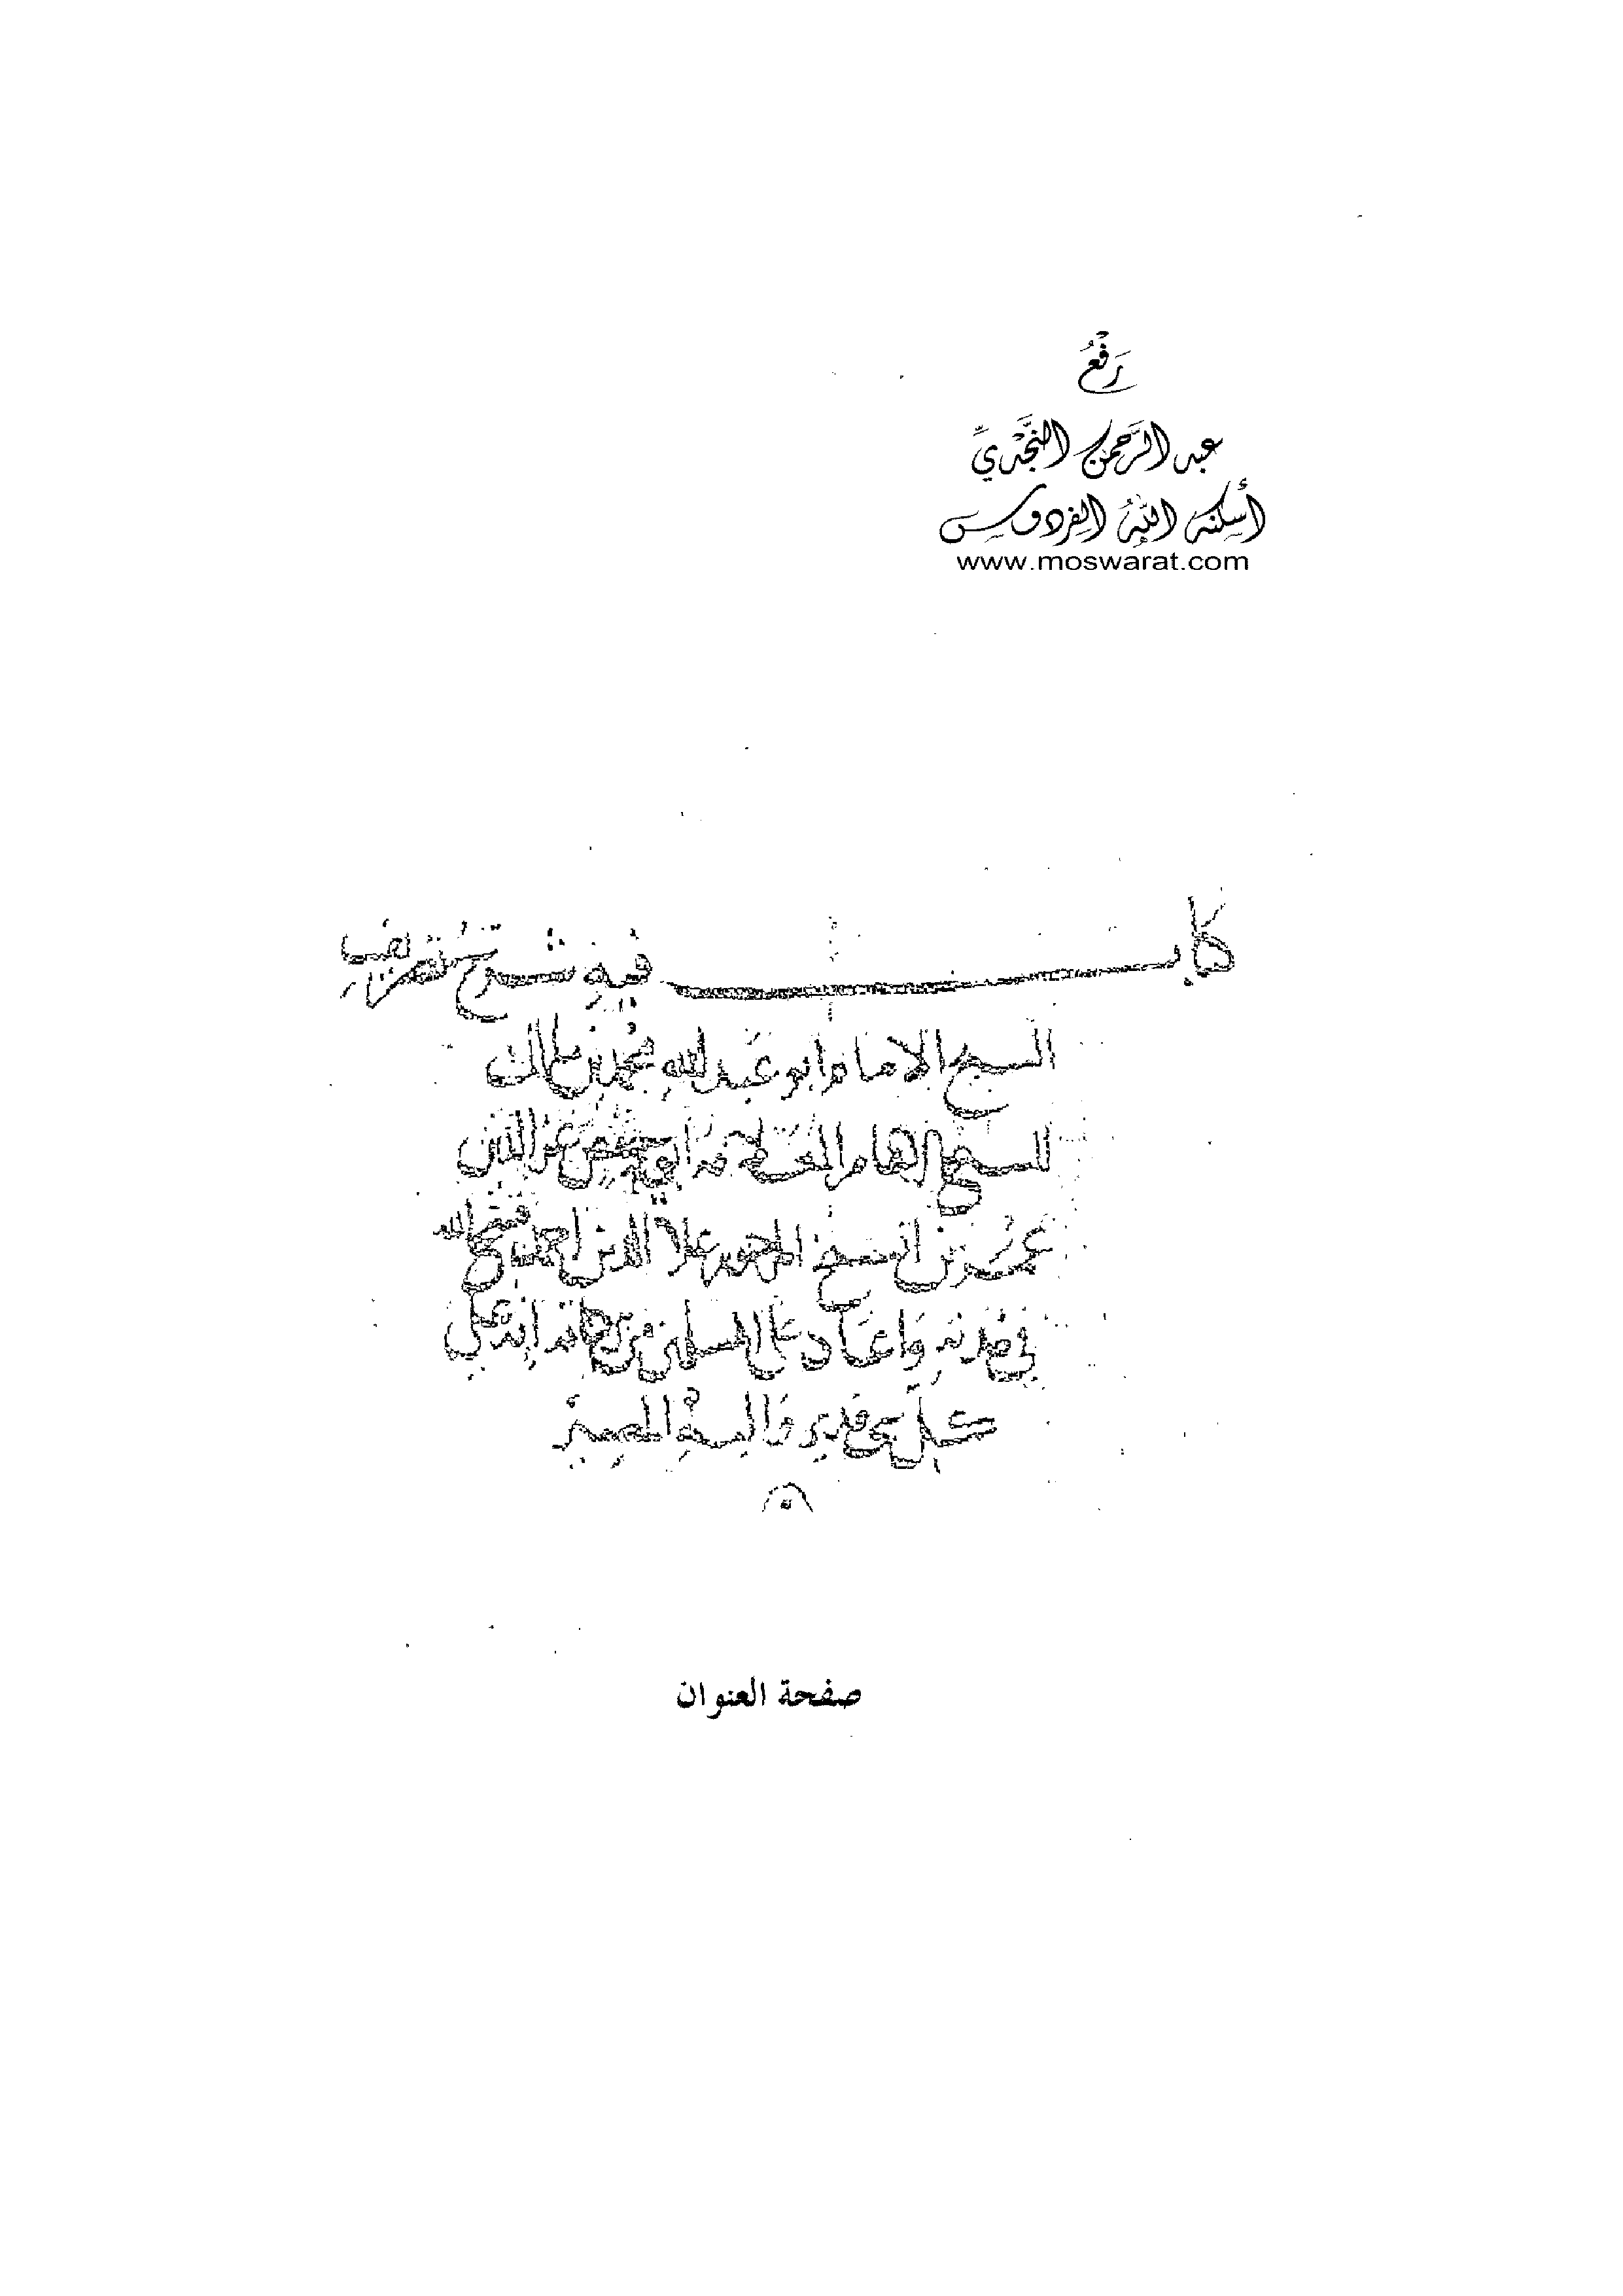 رَفْعُ
عبد الرَّحمن النَّجْديِّ
أسكنه اللهُ الفردوس
www.moswarat.com
كتاب فيه شرح تصريف
الشيخ الامام ابو عبد الله محمد بن مالك
للشيخ الامام العلامة عز الدين
عمر بن الشيخ المرحوم علا الدين فسح الله
في مدته واعاد على المسلمين من بركاته انه على
كل شي قدير واليه المصير
صفحة العنوان